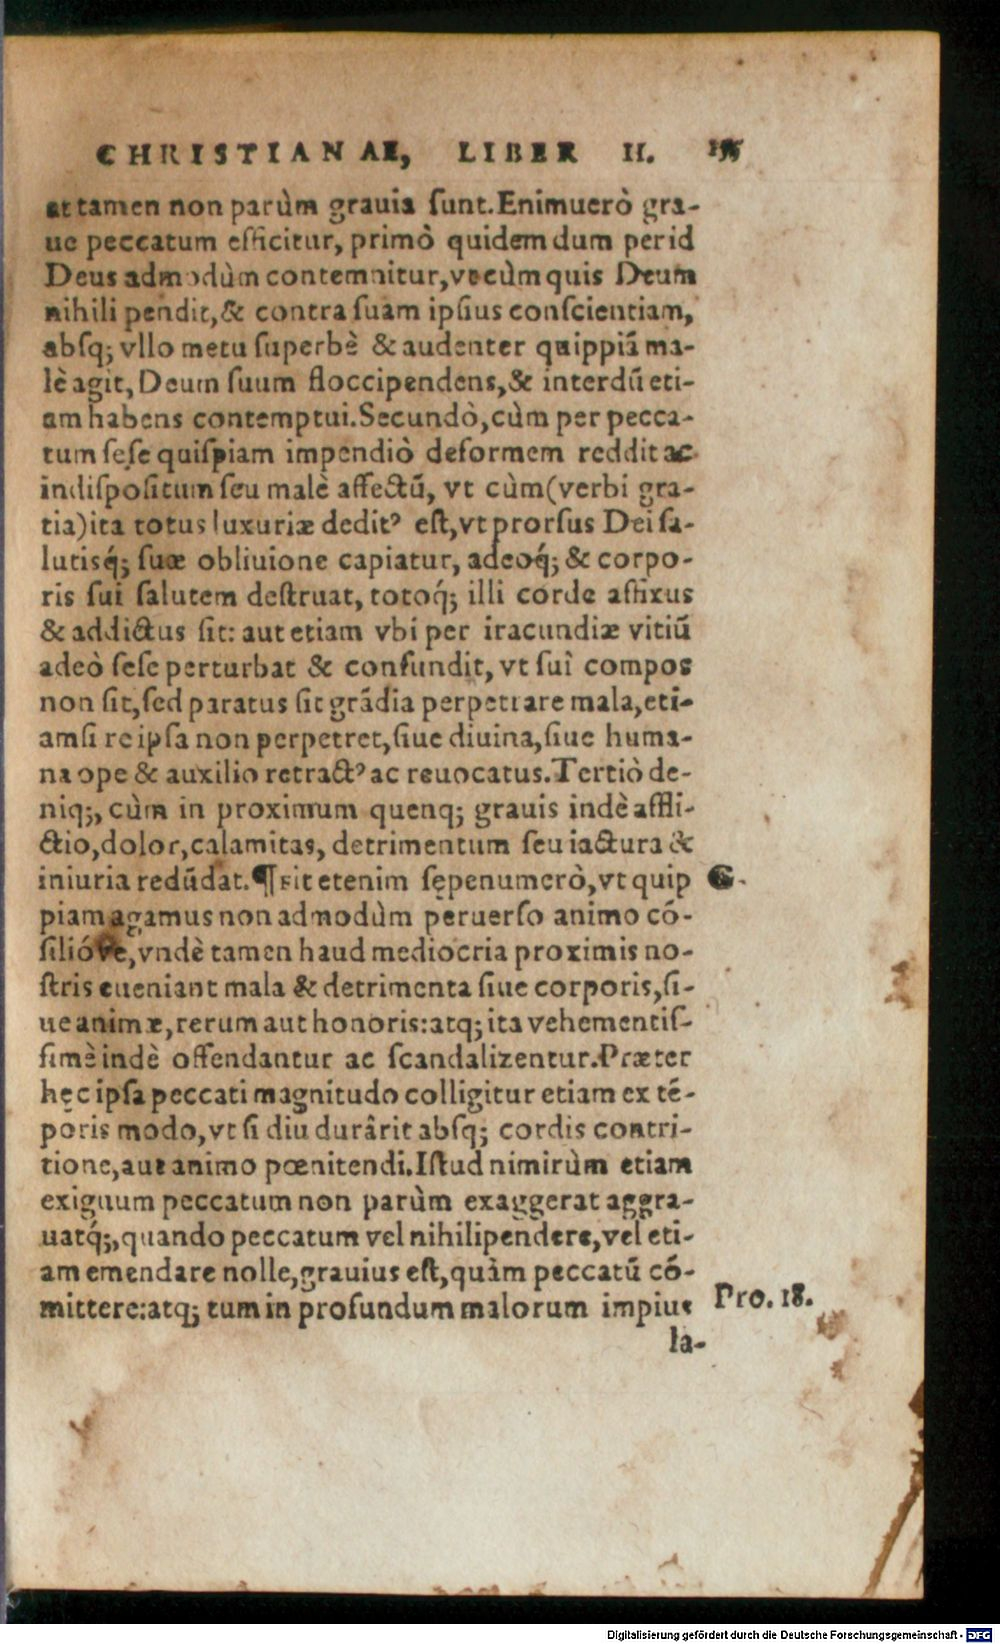 CHRISTIANAE, LIBER II.
attamen non parùm grauia ſunt. Enimuerò gra-
ue peccatum efficitur, primò quidem dum per id
Deus admodùm contemnitur, vt cùm quis Deum
nihili pendit, & contra ſuam ipſius conſcientiam,
abſq; vllo metu ſuperbè & audenter quippiã ma-
lè agit, Deum ſuum floccipendens, & interdũ eti-
am habens contemptui. Secundò, cùm per pecca-
tum ſeſe quiſpiam impendiò deformem reddit ac
indiſpoſitum ſeu malè affectũ, vt cùm (verbi gra-
tia) ita totus luxuriæ deditꝰ eſt, vt prorſus Dei ſa-
lutisq́; ſuæ obliuione capiatur, adeoq́; & corpo-
ris ſui ſalutem deſtruat, totoq́; illi corde affixus
& addictus ſit: aut etiam vbi per iracundiæ vitiũ
adeò ſeſe perturbat & confundit, vt ſuî compos
non ſit, ſed paratus ſit grãdia perpetrare mala, eti-
amſi re ipſa non perpetret, ſiue diuina, ſiue huma-
na ope & auxilio retractꝰ ac reuocatus. Tertiò de-
niq;, cùm in proximum quenq; grauis indè affli-
ctio, dolor, calamitas, detrimentum ſeu iactura &
iniuria redũdat. ¶ Fit etenim ſępenumerò, vt quip
G.
piam agamus non admodùm peruerſo animo cõ-
ſilióve, vndè tamen haud mediocria proximis no-
ſtris eueniant mala & detrimenta ſiue corporis, ſi-
ue animæ, rerum aut honoris: atq; ita vehementiſ-
ſimè indè offendantur ac ſcandalizentur. Præter
hęc ipſa peccati magnitudo colligitur etiam ex tẽ-
poris modo, vt ſi diu durârit abſq; cordis contri-
tione, aut animo pœnitendi. Iſtud nimirùm etiam
exiguum peccatum non parùm exaggerat aggra-
uatq́;, quando peccatum vel nihilipendere, vel eti-
am emendare nolle, grauius eſt, quàm peccatũ cõ-
mittere: atq; tum in profundum malorum impius
Pro. 18.
la-
Digitalisierung gefördert durch die Deutsche Forschungsgemeinschaft - DFG